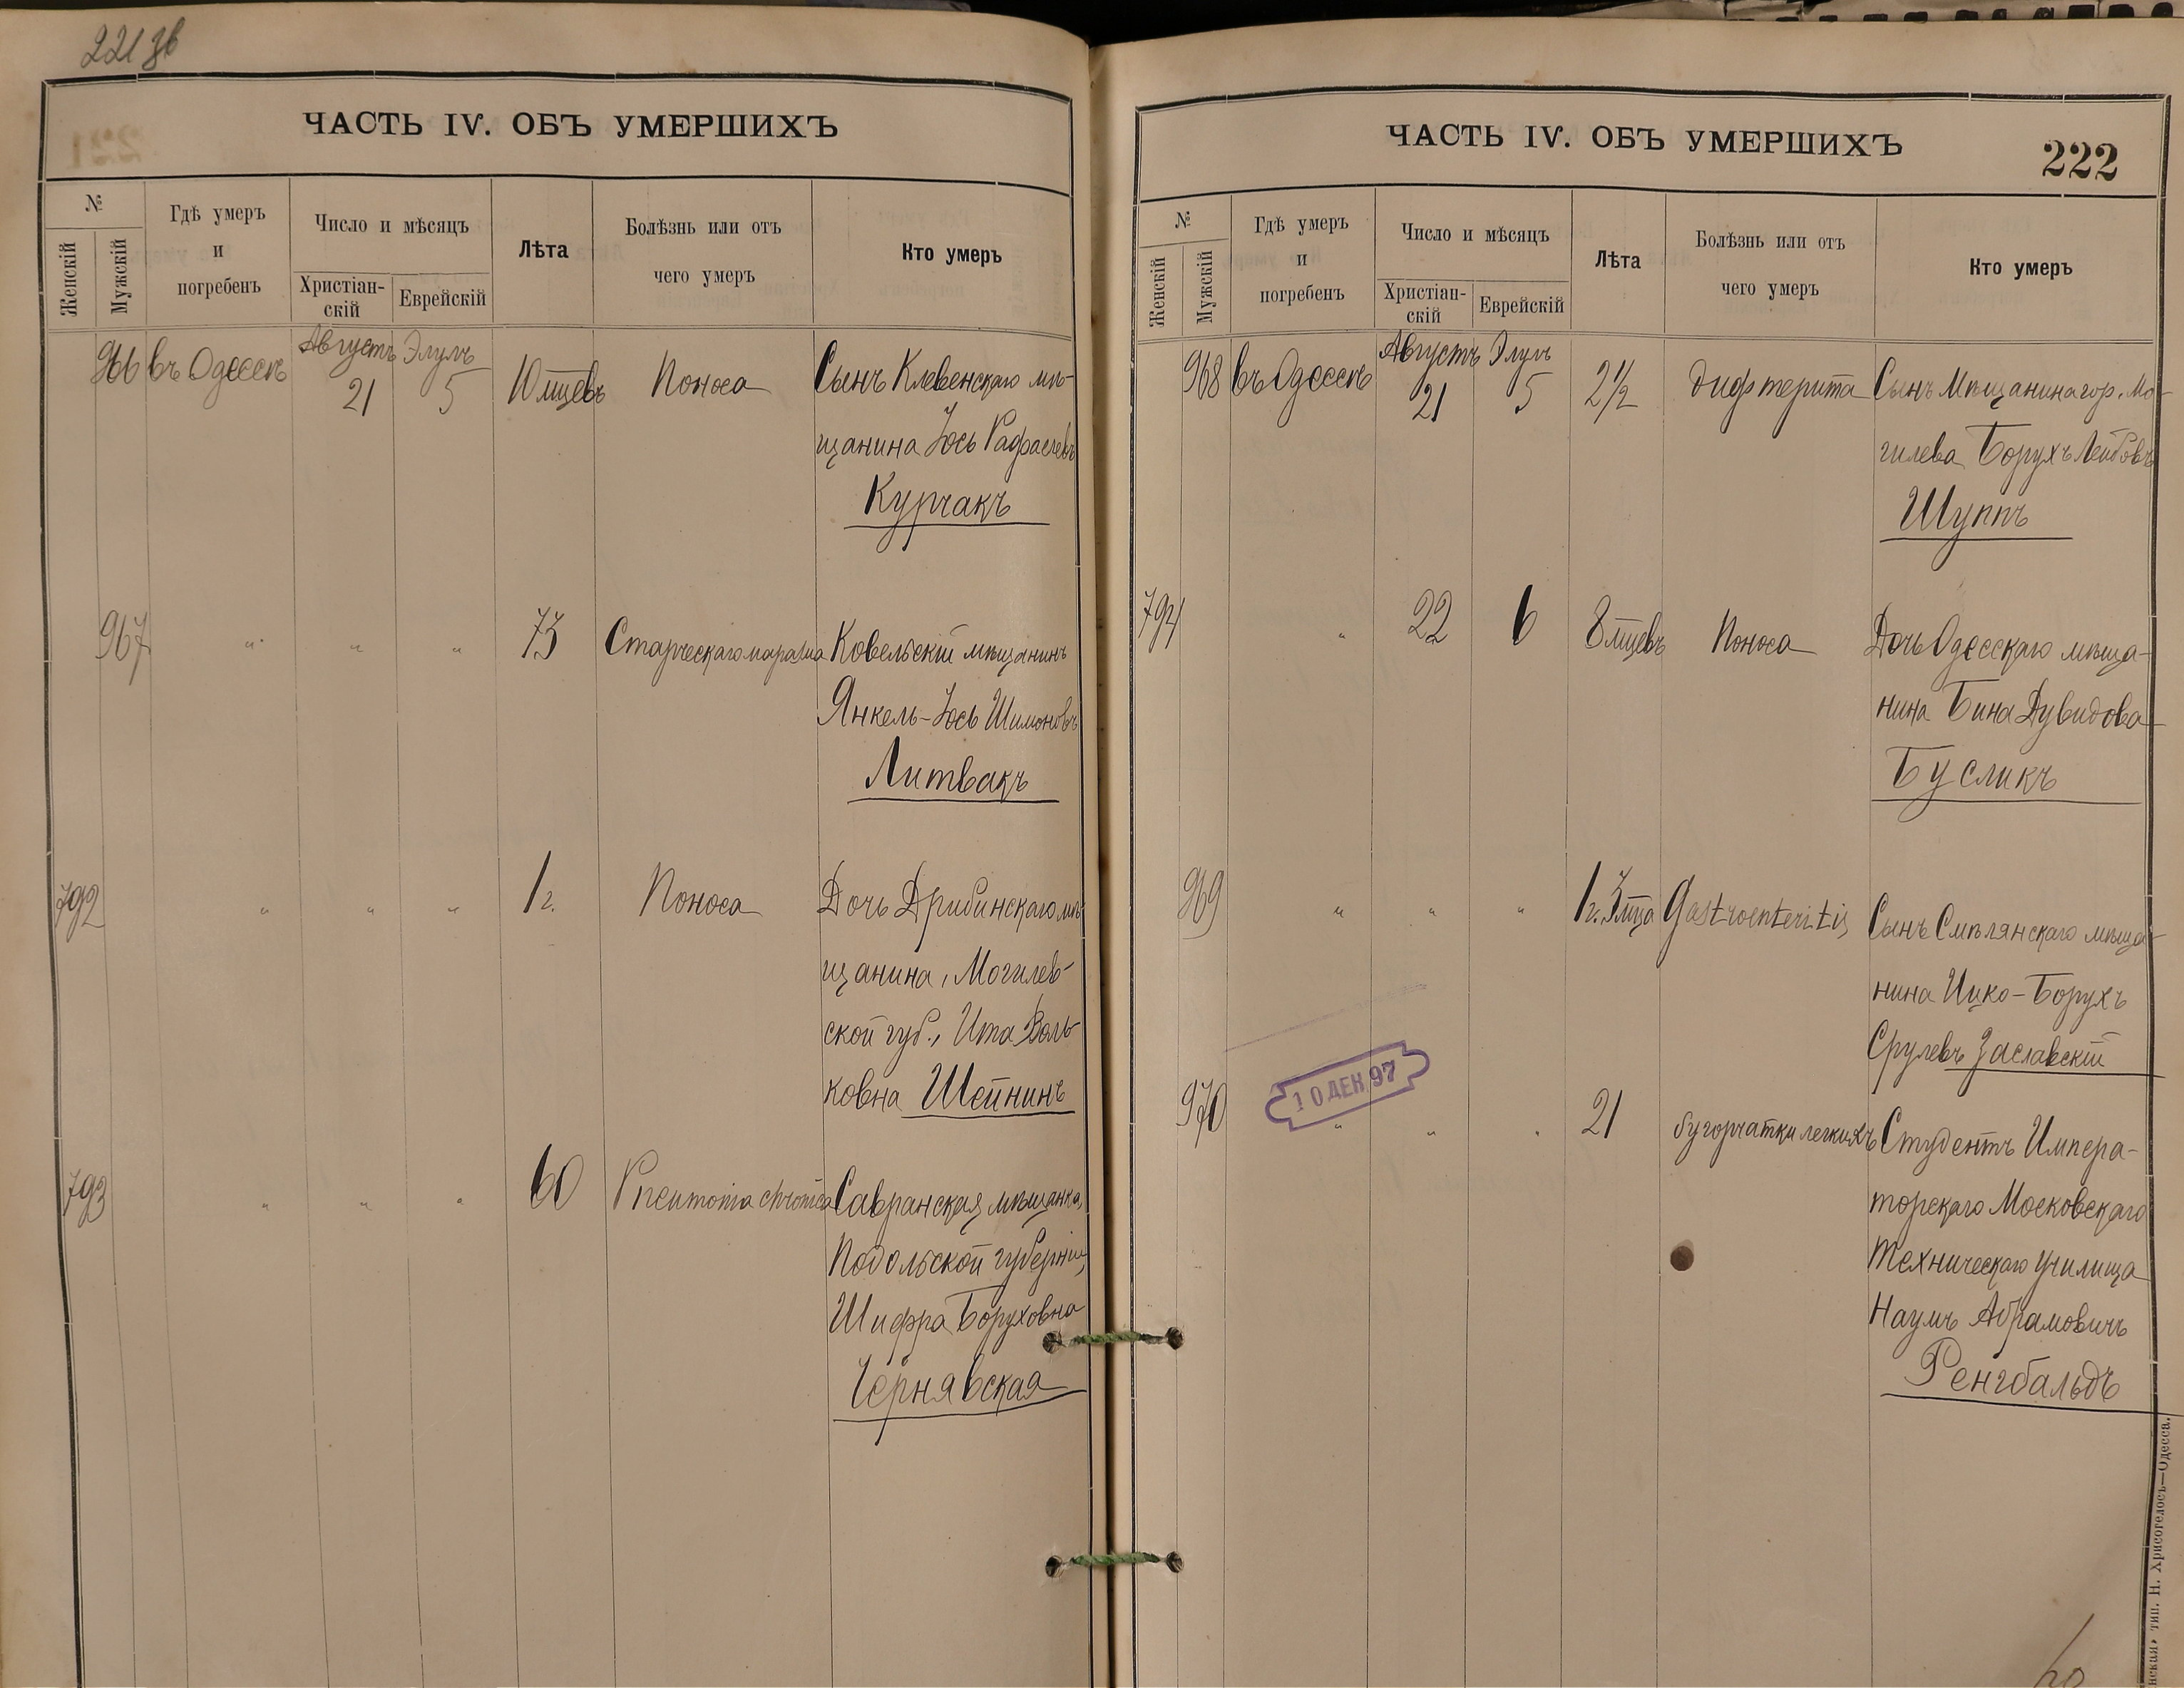 221 зв
ЧАСТЬ IV. ОБЪ УМЕРШИХЪ
№
Женскій
Мужскій
Гдѣ умеръ
и
погребенъ
Число и мѣсяцъ
Христіан-
скій
Еврейскій
Лѣта
Болѣзнь или отъ
чего умеръ
Кто умеръ
966 въ Одессѣ Августъ 21 Элулъ 5 10 мцевъ Поноса Сынъ Клевенскаго мѣ-
щанина Іось Рафаелевъ
Курчакъ
967 " " " 73 Старческаго маразма Ковельскій мѣщанинъ
Янкель-Іось Шимоновъ
Литвакъ
792 " " " 1 г. Поноса Дочь Дрибинскаго мѣ-
щанина, Могилев-
ской губ., Ита Воль-
ковна Шейнинъ
793 " " " 60 Pneumonia chronica Савранская мѣщанка,
Подольской губерніи,
Шифра Боруховна
Чернявская
ЧАСТЬ IV. ОБЪ УМЕРШИХЪ
222
№
Женскій
Мужскій
Гдѣ умеръ
и
погребенъ
Число и мѣсяцъ
Христіан-
скій
Еврейскій
Лѣта
Болѣзнь или отъ
чего умеръ
Кто умеръ
968 въ Одессѣ Августъ 21 Элулъ 5 2 1/2 дифтерита Сынъ Мѣщанина гор. Мо-
гилева Борухъ Лейбовъ
Шуппъ
794 " 22 6 8 мцевъ Поноса Дочь Одесскаго мѣща-
нина Бина Дувидова
Бусликъ
969 " " " 1 г. 3 мца Gastroenteritis Сынъ Смѣлянскаго мѣща-
нина Ицко-Борухъ
Срулевъ Заславскій
10 ДЕК 97
970 " " " 21 бугорчатки легкихъ Студентъ Импера-
торскаго Московскаго
Техническаго Училища
Наумъ Абрамовичъ
Ренгбальдъ
тип. Н. Хрисогелосъ—Одесса.